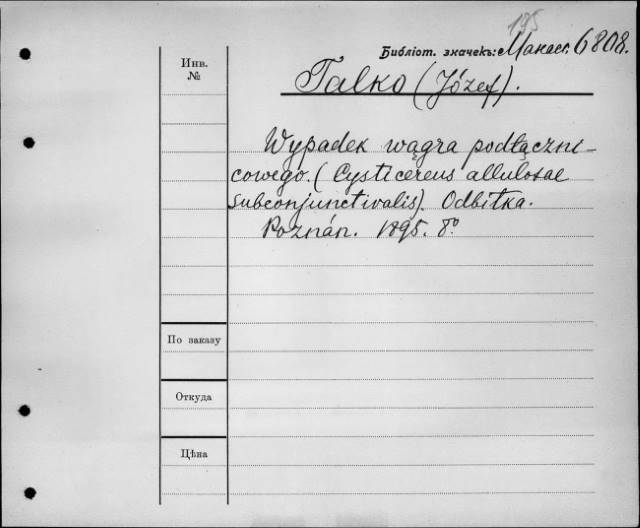 195
Библіот. значекъ: Манасс. 6808.
Инв. №
Talko (Józef).
Wypadek wągra podłączni-
cowego. (Cysticereus allulosae
Subconjunctivalis). Odbitka.
Poznán. 1895. 8°
По заказу
Откуда
Цѣна